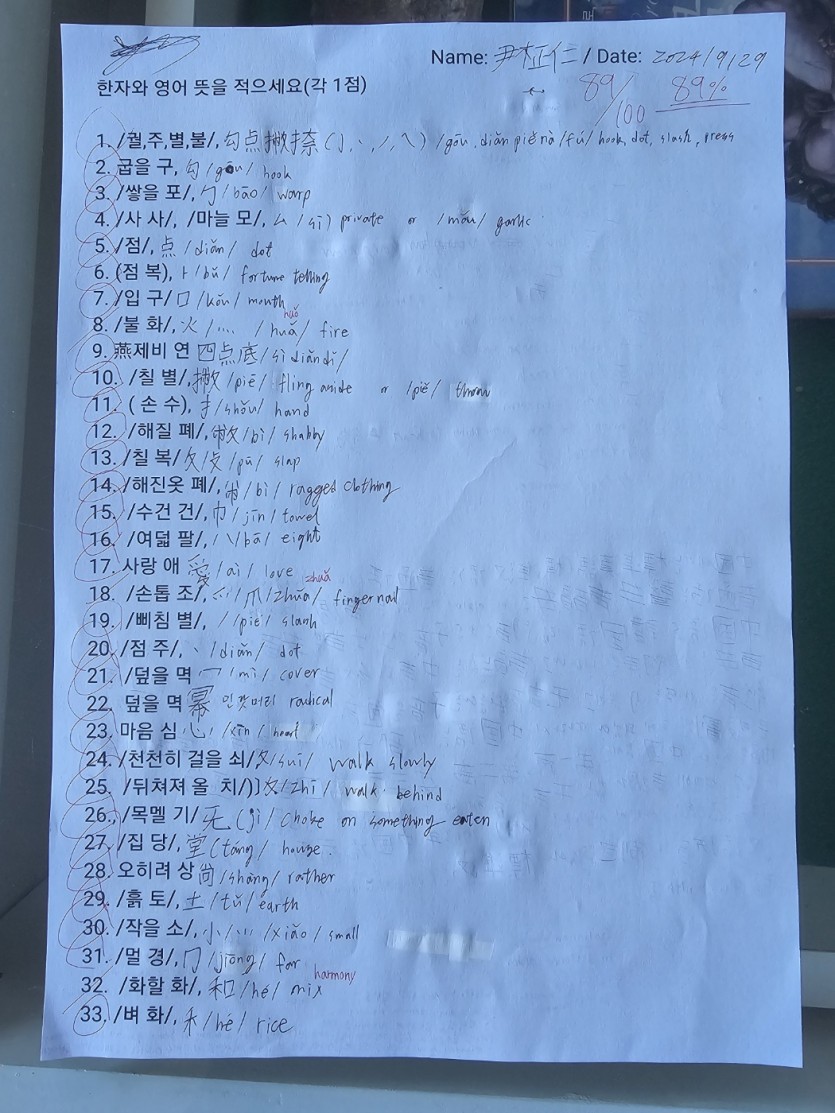 Name: 尹柾仁 / Date: 2024/9/29
한자와 영어 뜻을 적으세요(각 1점)
89/100 89%
1. /궐,주,별,불/, 勾点撇捺 (亅, 丶, 丿, 乀) /gōu, diǎn piě nà /fú/ hook, dot, slash, press
2. 굽을 구, 勾 /gōu/ hook
3. /쌓을 포/, 勹 /bāo/ warp
4. /사 사/, /마늘 모/, 厶 /sī/ private or /mǒu/ garlic
5. /점/, 点 /diǎn/ dot
6. (점 복), 卜 /bǔ/ fortune telling
7. /입 구/ 口 /kǒu/ mouth
8. /불 화/, 火 / 灬 /huǎ/ fire huǒ
9. 燕제비 연 四点底 /sì diǎn dǐ/
10. /칠 별/, 撇 /piē/ fling aside or /piě/ throw
11. ( 손 수), 扌/shǒu/ hand
12. /해질 폐/, 敝 /bì/ shabby
13. /칠 복/ 攵/攴 /pū/ slap
14. /해진옷 폐/, 㡀 /bì/ ragged clothing
15. /수건 건/, 巾 /jīn/ towel
16. /여덟 팔/, 八 /bā/ eight
17. 사랑 애 愛 /ài/ love
18. /손톱 조/, 爫/ 爪 /zhuǎ/ fingernail zhuǎ
19. /삐침 별/, 丿 /piě/ slash
20. /점 주/, 丶 /diǎn/ dot
21. /덮을 멱 冖 /mì/ cover
22. 덮을 멱 冪 민갓머리 radical
23. 마음 심 心 /xīn/ heart
24. /천천히 걸을 쇠/, 夊/suī/ walk slowly
25. /뒤쳐져 올 치/)] 夂/zhǐ/ walk behind
26., /목멜 기/ 旡 (jì/ choke on something eaten
27. /집 당/, 堂 (táng/ house.
28. 오히려 상 尚 /shàng/ rather
29. /흙 토/, 土 /tǔ/ earth
30. /작을 소/, 小/⺌ /xiǎo/ small
31. /멀 경/, 冂 /jiōng/ far
32. /화할 화/, 和 /hé/ mix harmony
33. /벼 화/, 禾 /hé/ rice